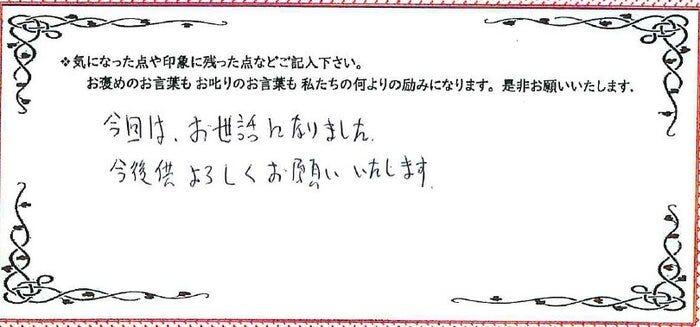 ❖気になった点や印象に残った点などご記入下さい。
お褒めのお言葉も お叱りのお言葉も 私たちの何よりの励みになります。是非お願いいたします.
今回は、お世話になりました.
今後供よろしくお願いいたします.